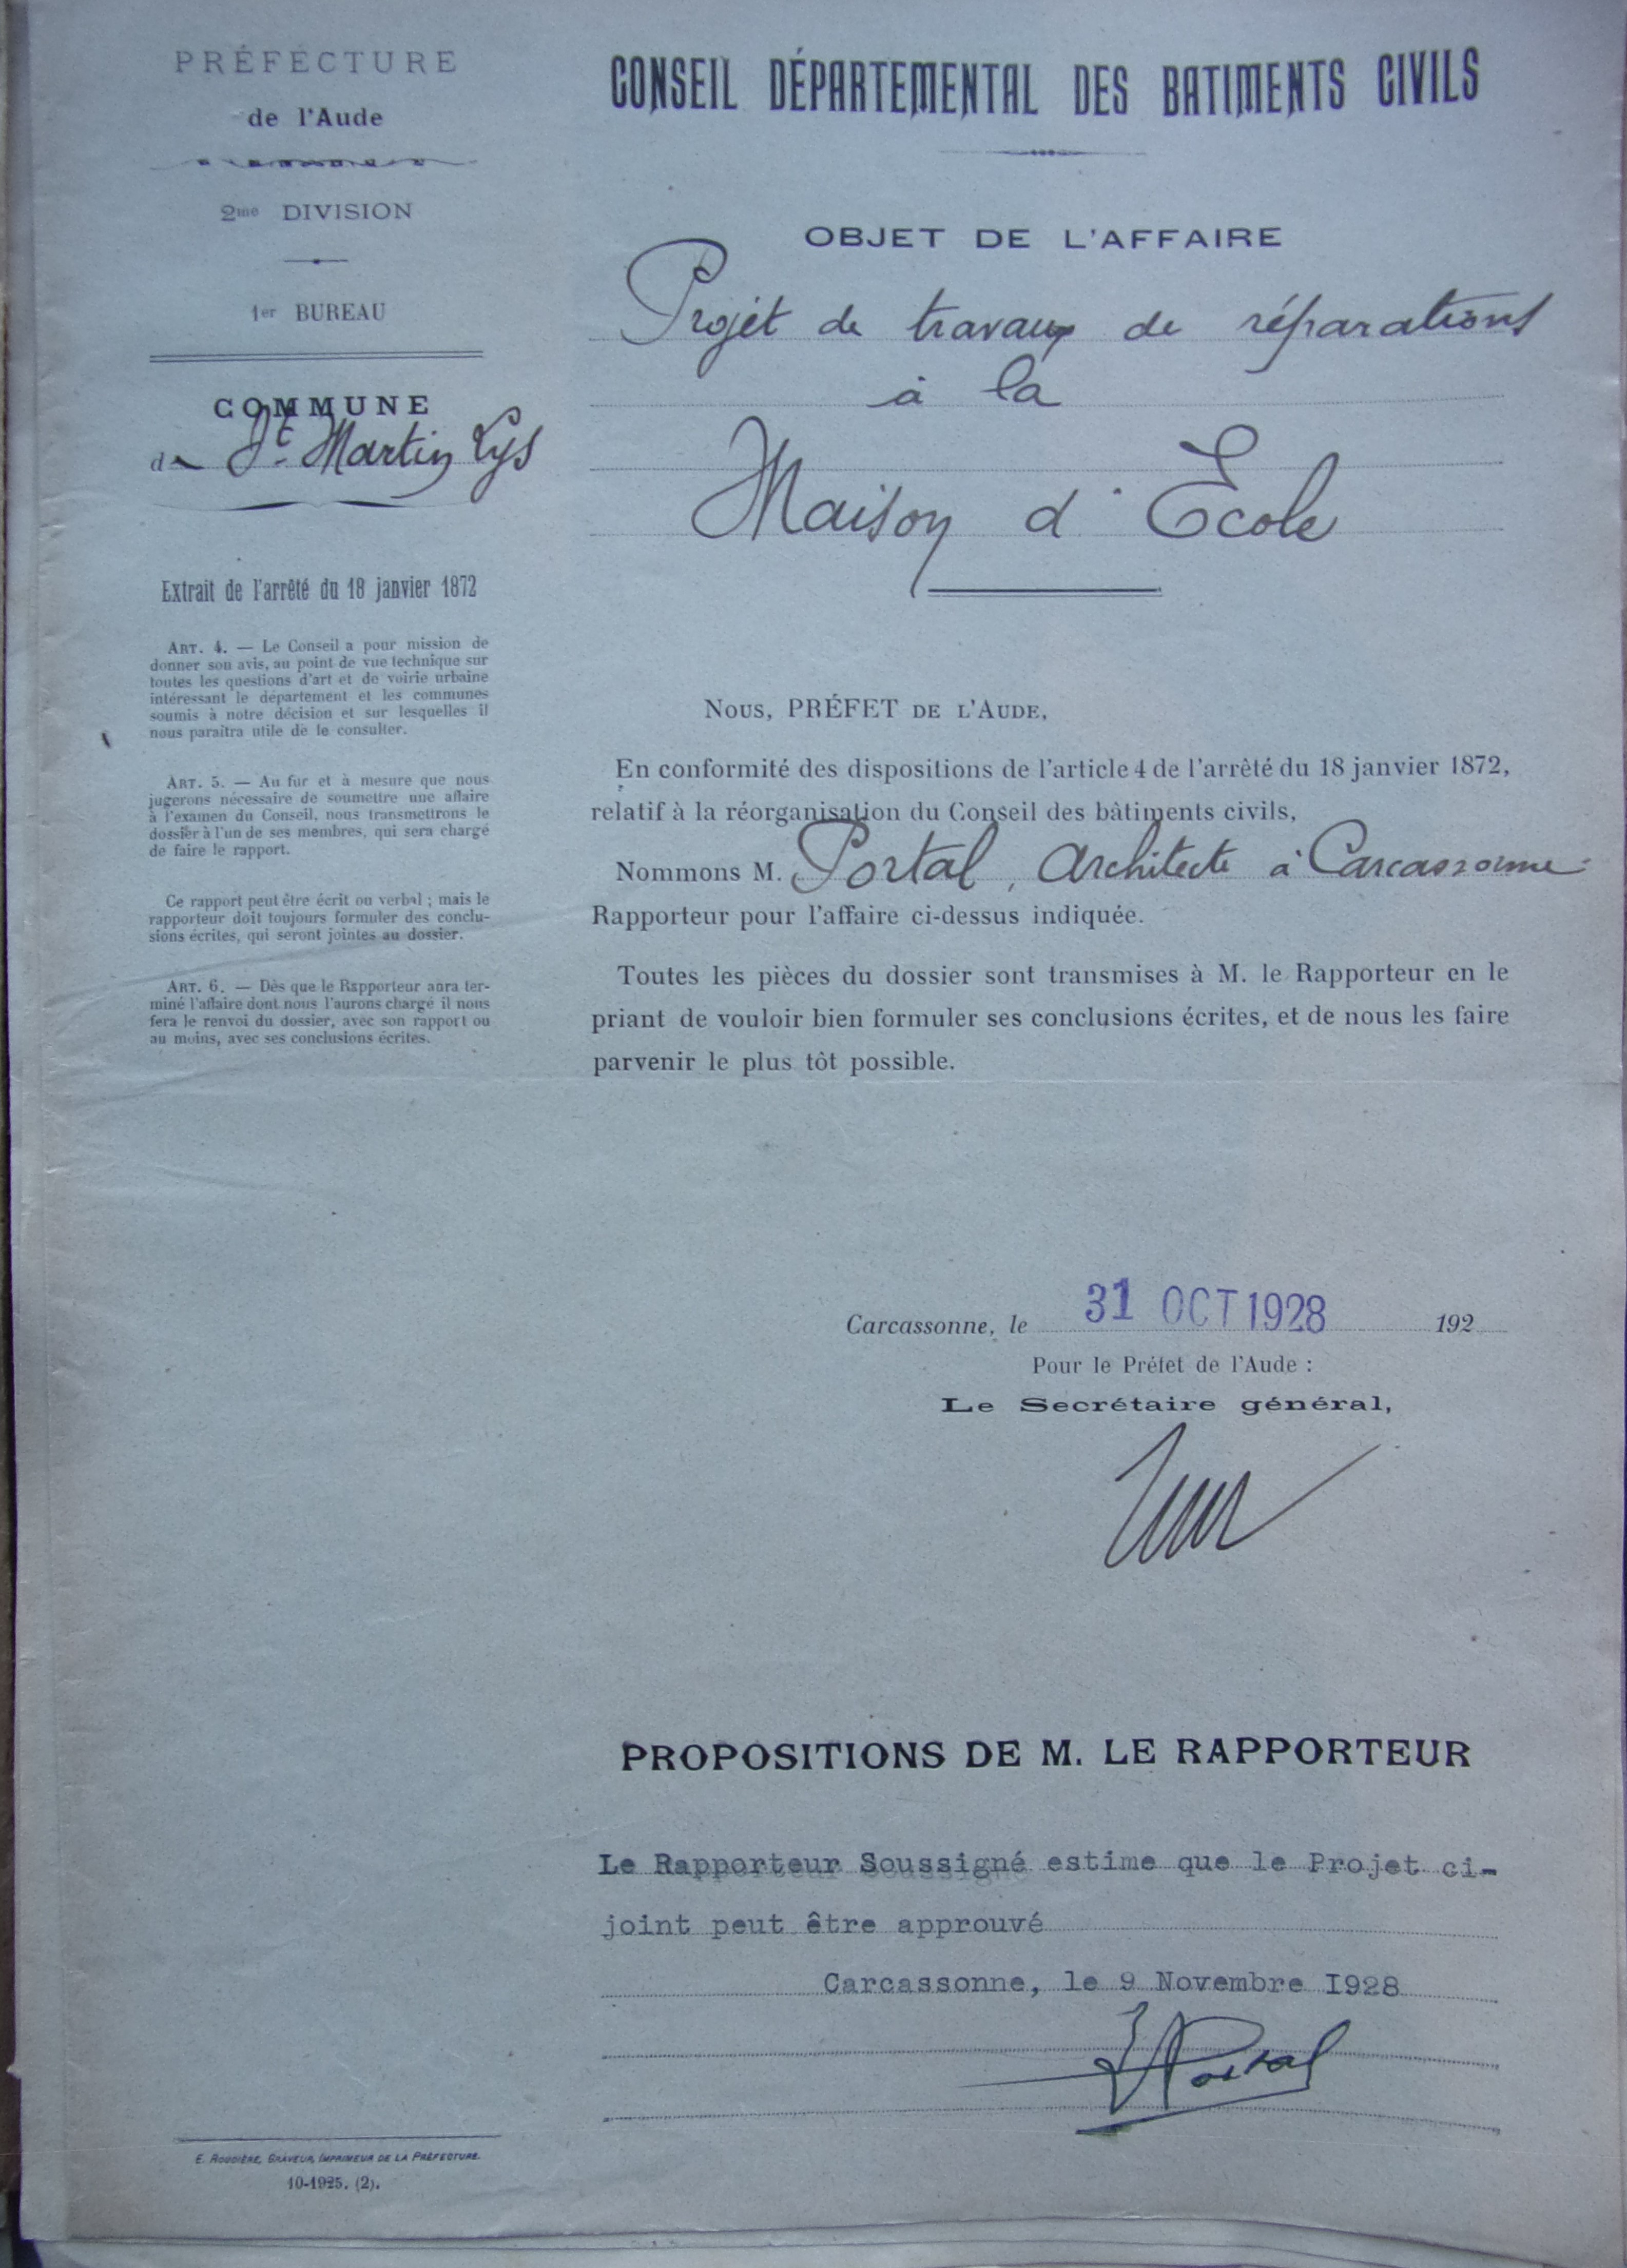 PRÉFECTURE
de l'Aude
2me DIVISION
1er BUREAU
COMMUNE
de St. Martin Lys
Extrait de l'arrêté du 18 janvier 1872
ART. 4. — Le Conseil a pour mission de
donner son avis, au point de vue technique sur
toutes les questions d'art et de voirie urbaine
intéressant le département et les communes
soumis à notre décision et sur lesquelles il
nous paraîtra utile de le consulter.
ART. 5. — Au fur et à mesure que nous
jugerons nécessaire de soumettre une affaire
à l'examen du Conseil, nous transmettrons le
dossier à l'un de ses membres, qui sera chargé
de faire le rapport.
Ce rapport peut être écrit ou verbal ; mais le
rapporteur doit toujours formuler des conclu-
sions écrites, qui seront jointes au dossier.
ART. 6. — Dès que le Rapporteur aura ter-
miné l'affaire dont nous l'aurons chargé il nous
fera le renvoi du dossier, avec son rapport ou
au moins, avec ses conclusions écrites.
E. ROUDIÈRE, GRAVEUR, IMPRIMEUR DE LA PRÉFECTURE.
10-1925. (2).
CONSEIL DÉPARTEMENTAL DES BATIMENTS CIVILS
OBJET DE L'AFFAIRE
Projet de travaux de réparations
à la
Maison d'Ecole
NOUS, PRÉFET DE L'AUDE,
En conformité des dispositions de l'article 4 de l'arrêté du 18 janvier 1872,
relatif à la réorganisation du Conseil des bâtiments civils,
Nommons M. Portal, Architecte à Carcassonne
Rapporteur pour l'affaire ci-dessus indiquée.
Toutes les pièces du dossier sont transmises à M. le Rapporteur en le
priant de vouloir bien formuler ses conclusions écrites, et de nous les faire
parvenir le plus tôt possible.
Carcassonne, le 31 OCT 1928 192
Pour le Préfet de l'Aude :
Le Secrétaire général,
PROPOSITIONS DE M. LE RAPPORTEUR
Le Rapporteur Soussigné estime que le Projet ci-
joint peut être approuvé
Carcassonne, le 9 Novembre I928
Portal